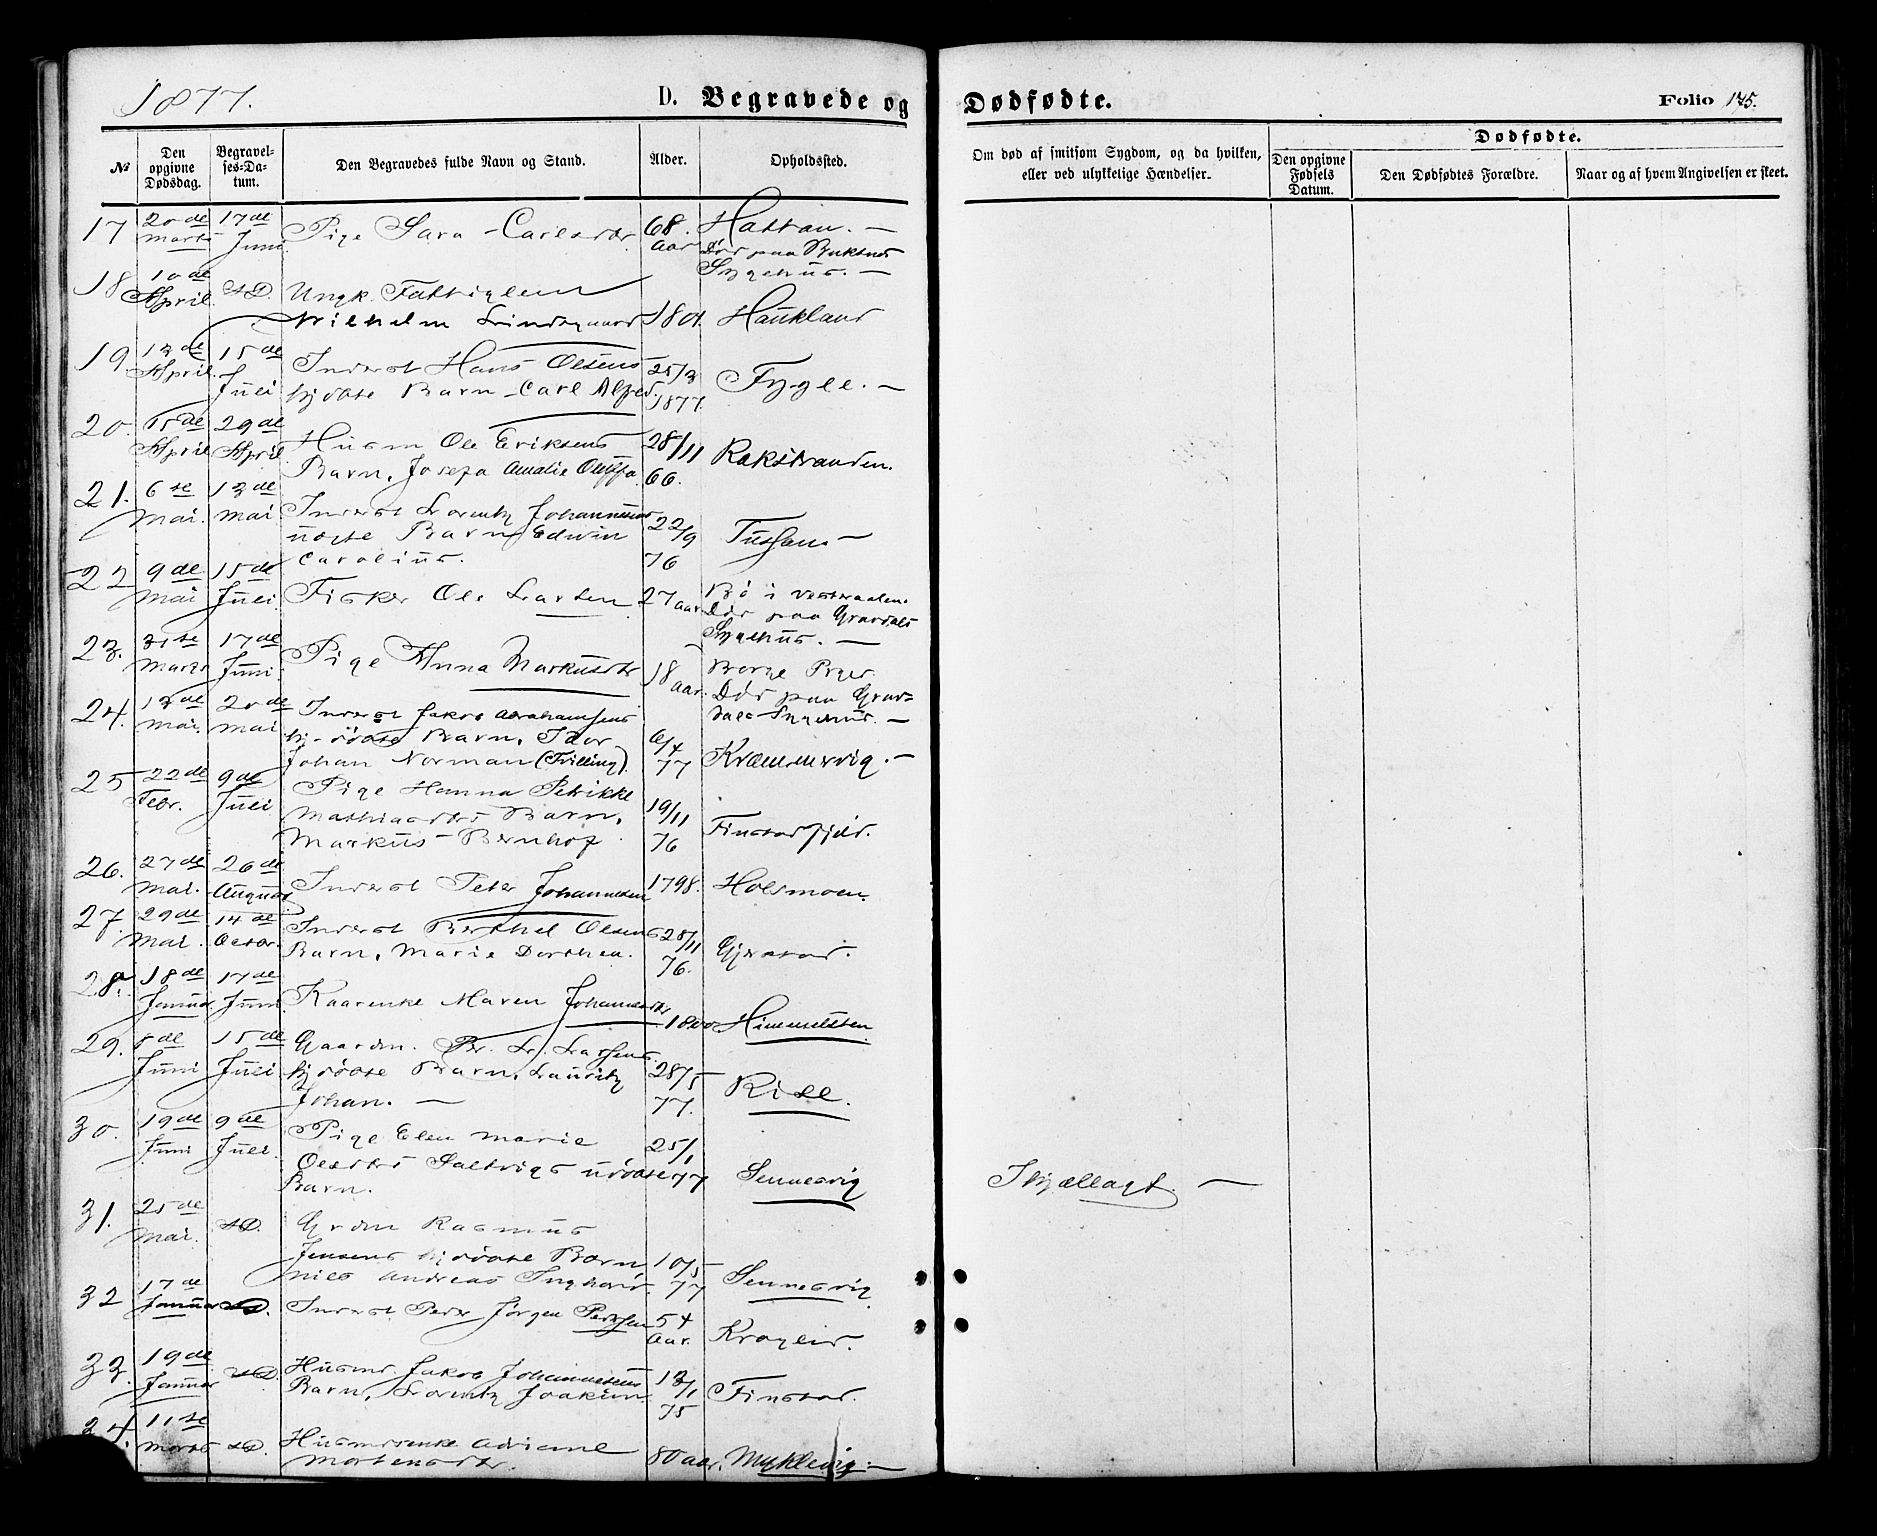 1877.
D. Begravede og
Dødfødte.
Folio 175.
№
Den opgivne Dødsdag.
Begravelses-Datum.
Den Begravedes fulde Navn og Stand.
Alder.
Opholdssted.
Om død af smitsom Sygdom, og da hvilken, eller ved ulykkelige Hændelser.
Dødfødte.
Den opgivne Fødsels Datum.
Den Dødfødtes Forældre.
Naar og af hvem Angivelsen er skeet.
17 20de Marts 17de Juni Pige Sara Carlsdtr 68 aar Hattan. —
Død paa
Sygehus. —
18 10de April s.D. Ungk. Fattiglem
Wilhelm 1801. Haukland
19 13de April 15de Juli Inderst Hans Olsens 25/3
Barn Carl Alfred. 1877. Fygle. —
20. 15de April 29de April Husm Ole Eriksens 28/11
Barn, Josefa Amalie 66. Rakstranden.
21. 6te Mai. 13de Mai Inderst Lorentz Johannesens 22/9
uægte Barn Edwin 76
Carolius.
22 9de Mai 15de Juli Fisker Ole Larsen 27 aar Bø i Vesteraalen.
Død paa Gravdals
Sygehus. —
23. 31te Marts 17de Juni. Pige Anna Markusdtr 18 aar. Borge Prgjd
Død paa Grav=
dals Sygehus. —
24. 13de Mai. 20de Mai Inderst Jakob Abrahamsens
Barn, 6/4
Johan Norman (Tvilling) 77
25 22de Febr. 9de Juli Pige Hanna Petrikke
Mathiasdtrs Barn, 19/11
Markus Bernhof 76 Finstadfjord.
26. 27de Mai. 26de August Inderst Peter Johannesen 1798. Holsmoen.
27. 29de Mai. 14de Octbr. Inderst Berthel Olsens 28/11
Barn, Marie Dorthea. 76. Gjerstad.
28. 18de Januar 17de Juni Kaarenke Maren Johannesdtr 1800 Himmelsten
29. 5de Juni 15de Juli Gaardm. Larsens
Barn, Lauritz 28/5
Johan. — 77. Rise.
30. 19de Juni 9de Juli. Pige Elen Marie 25/1
Olsdtrs Saltvigs uægte 77 Sennesvig
Barn.
31. 25de Mai. s.D. Grdm Rasmus
Jensens Barn 10/5
Nils Andreas Inghard. 77 Sennesvig
32 17de Januar s.D. Inderst Peder Jørgen Pedersen 54 aar. Kroglid.
33. 19de Januar s.D. Husmd Jakob Johannesens 13/1
Barn, Lorentz Joakim 75 Finstad.
34. 11te Marts s.D. Husmdsenke Adriane
Mortensdtr. 80 aar. Myklevig. —